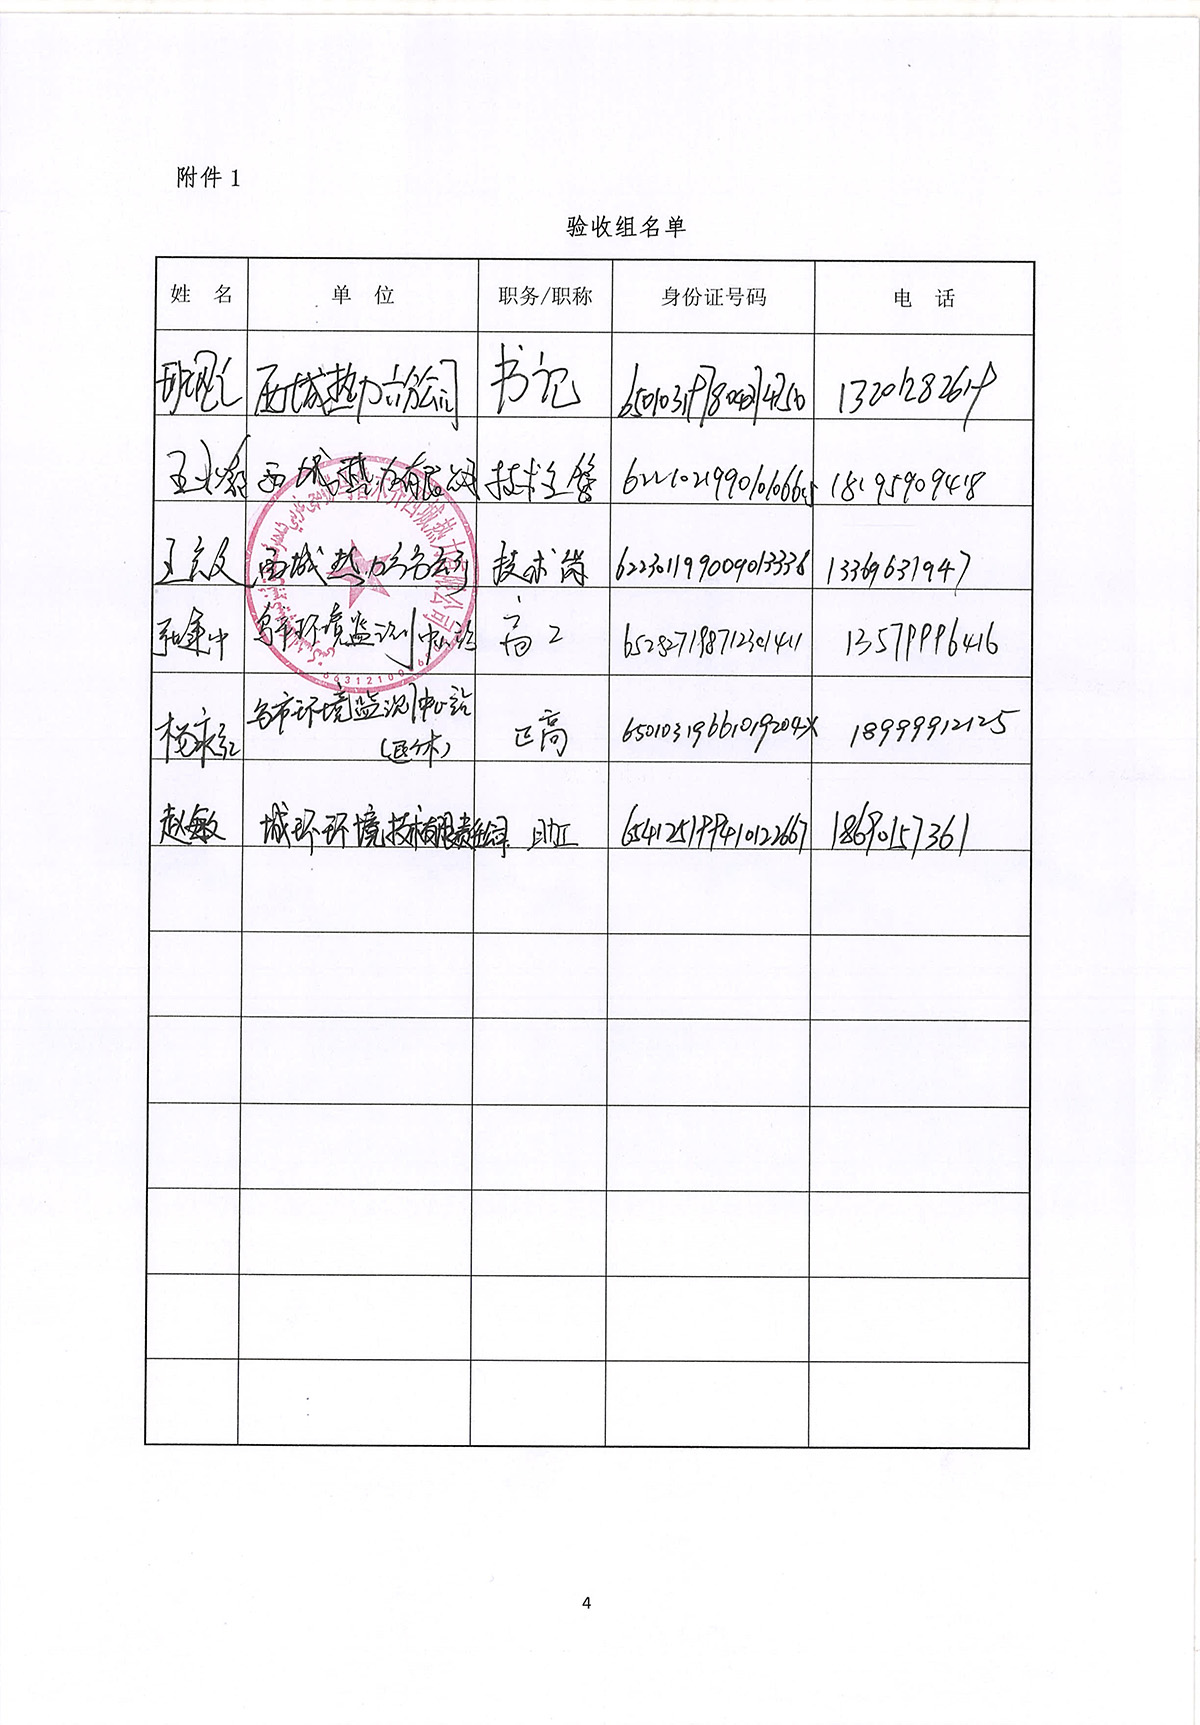 附件 1
验收组名单
姓 名 单 位 职务/职称 身份证号码 电 话
西城热力分公司 书记 13201282619
西城热力有限公司 技术主管 18195909418
西城热力分公司 技术岗 622301199009013338 13369631947
张建中 乌市环境监测中心站 高工 652827198712301411 13579996416
杨永红 乌市环境监测中心站 正高 65010319661019204X 18999912125
(退休)
赵敏 城环环境技术有限责任公司 助工 654125199410122667 18690157361
4